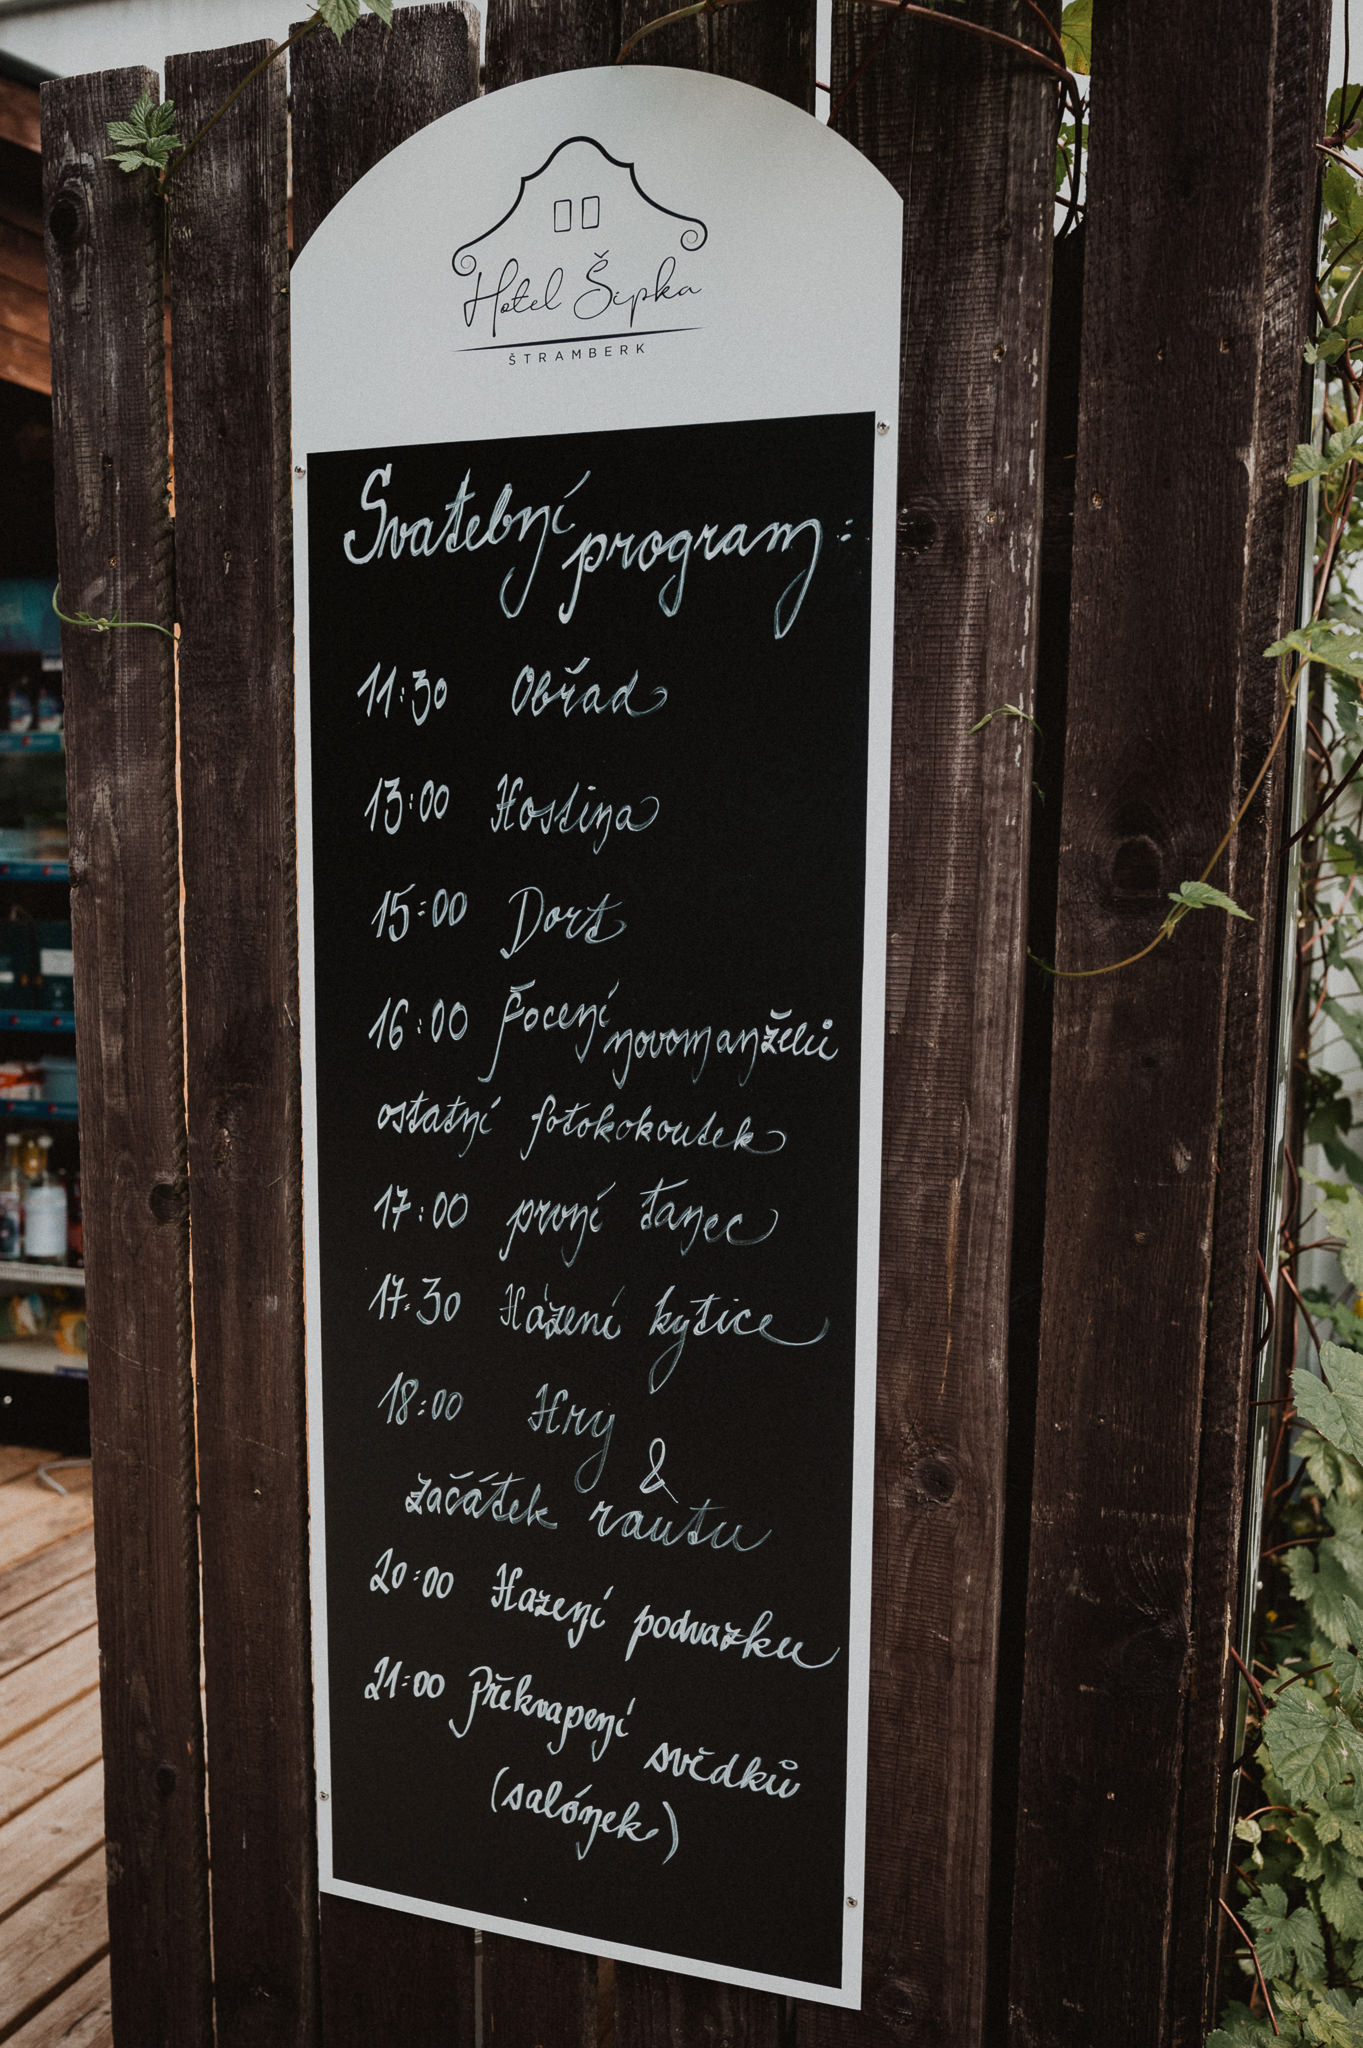 Hotel Šipka
ŠTRAMBERK
Svatební program:
11:30 Obřad
13:00 Hostina
15:00 Dort
16:00 Focení novomanželů
ostatní fotokokoutek
17:00 první tanec
17:30 Házení kytice
18:00 Hry &
začátek rautu
20:00 Hazení podvazku
21:00 Překvapení svědků
(salónek)